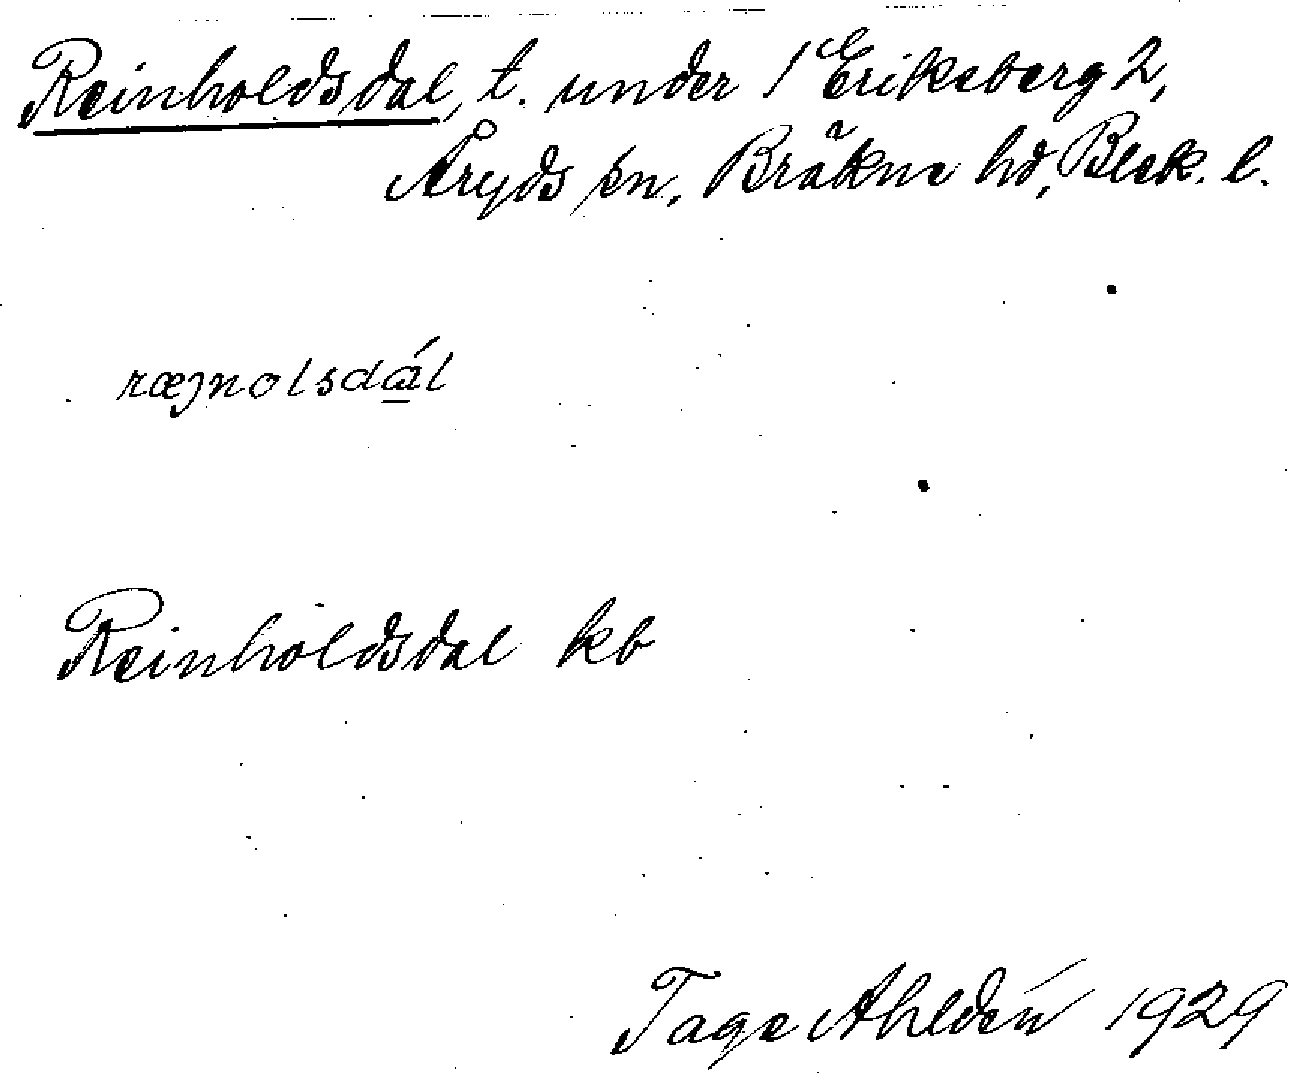 Reinholdsdal, t. under 1 Eriksberg 2,
Åryds sn, Bräkne hd, Blek. l.
ræjnolsdál
Reinholdsdal kb
Tage Ahldén 1929